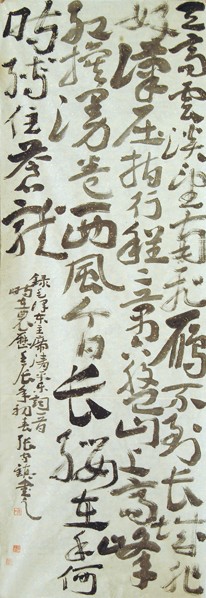 天高云淡望断南飞雁不到长城非
好汉屈指行程二万六盘山上高峰
红旗漫卷西风今日长缨在手何
时缚住苍龙
录毛泽东主席清平乐词一首
时在